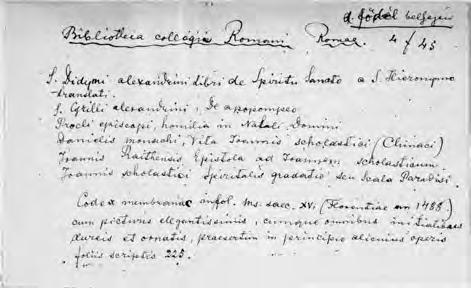 d. födél belsején
Bibliotheca collegii Romani Romae. 4 f 45
S. Didymi alexandrini libri de Spiritu Sancto a S. Hieronymo
translati.
S. Cyrilli alexandrini, De apopompeo
Procli episcopi, homilia in Natali Domini
Danielis monachi, Vita Joannis scholastici (Climaci)
Joannis Raithensis Epistola ad Joannem scholasticum
Joannis scholastici Spiritalis gradatio seu Scala Paradisi.
Codex membranac. in fol. ms. saec. XV. (Florentiae an 1488)
cum picturis elegantissimis, cumque omnibus initialibus
aureis et ornatis, praesertim in principio alicuius operis
foliis scriptis 225.